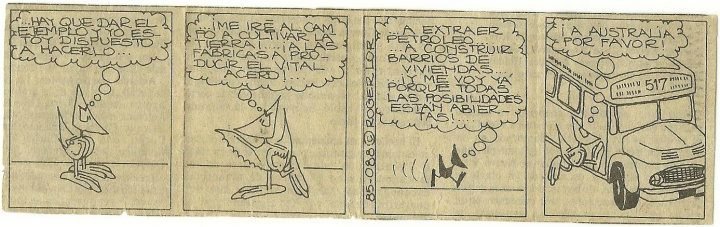 ...HAY QUE DAR EL
EJEMPLO Y YO ES-
TOY DISPUESTO
A HACERLO...
¡ME IRÉ AL CAM
PO A CULTIVAR LA
TIERRA!....¡A LAS
FÁBRICAS A PRO-
DUCIR EL VITAL
ACERO!...
...A EXTRAER
PETROLEO...
...A CONSTRUIR
BARRIOS DE
VIVIENDAS...
...¡Y ME VOY YA
PORQUE TODAS
LAS POSIBILIDADES
ESTAN ABIER-
TAS!....
85-088©ROGER.LOR
¡A AUSTRALIA
POR FAVOR!
517